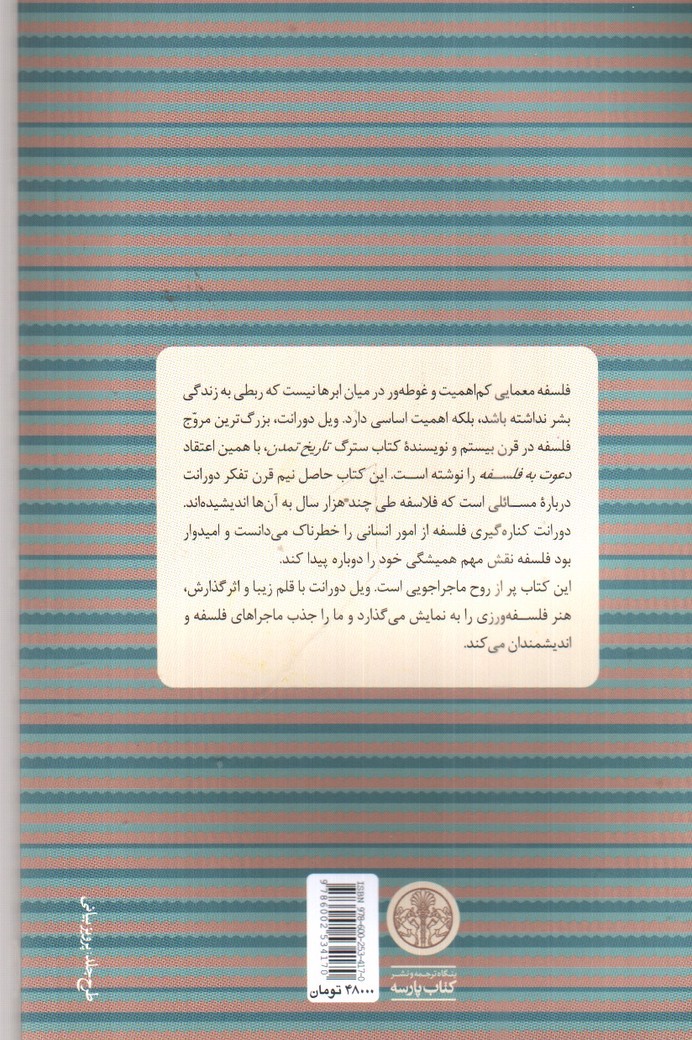 فلسفه معمایی کم‌اهمیت و غوطه‌ور در میان ابرها نیست که ربطی به زندگی
بشر نداشته باشد، بلکه اهمیت اساسی دارد. ویل دورانت، بزرگ‌ترین مروّج
فلسفه در قرن بیستم و نویسندهٔ کتاب سترگ تاریخ تمدن، با همین اعتقاد
دعوت به فلسفه را نوشته است. این کتاب حاصل نیم قرن تفکر دورانت
دربارهٔ مسائلی است که فلاسفه طی چند هزار سال به آن‌ها اندیشیده‌اند.
دورانت کناره‌گیری فلسفه از امور انسانی را خطرناک می‌دانست و امیدوار
بود فلسفه نقش مهم همیشگی خود را دوباره پیدا کند.
این کتاب پر از روح ماجراجویی است. ویل دورانت با قلم زیبا و اثرگذارش،
هنر فلسفه‌ورزی را به نمایش می‌گذارد و ما را جذب ماجراهای فلسفه و
اندیشمندان می‌کند.
بنگاه ترجمه و نشر
کتاب پارسه
ISBN 978-600-253-417-0
9786002534170
۴۸۰۰۰ تومان
طرح جلد: پرویز بیانی